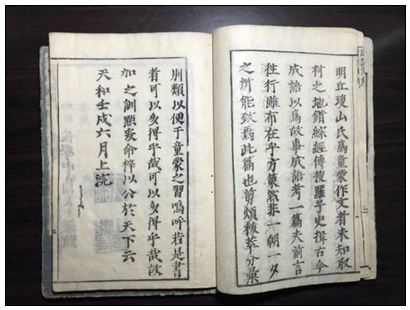 明丘瓊山氏為童蒙作文者未知取
材之地鑽綜經傳搜羅子史揖古今
成語以為故事成語考一篇夫前言
往行雖布在乎方策然非一朝一夕
之所能致焉此篇也剪類拔萃分彙
別類以便于童蒙之習嗚呼若是書
者可以多得乎哉可以多得乎哉故
加之訓點爰命梓以公於天下云
天和壬戌六月上浣